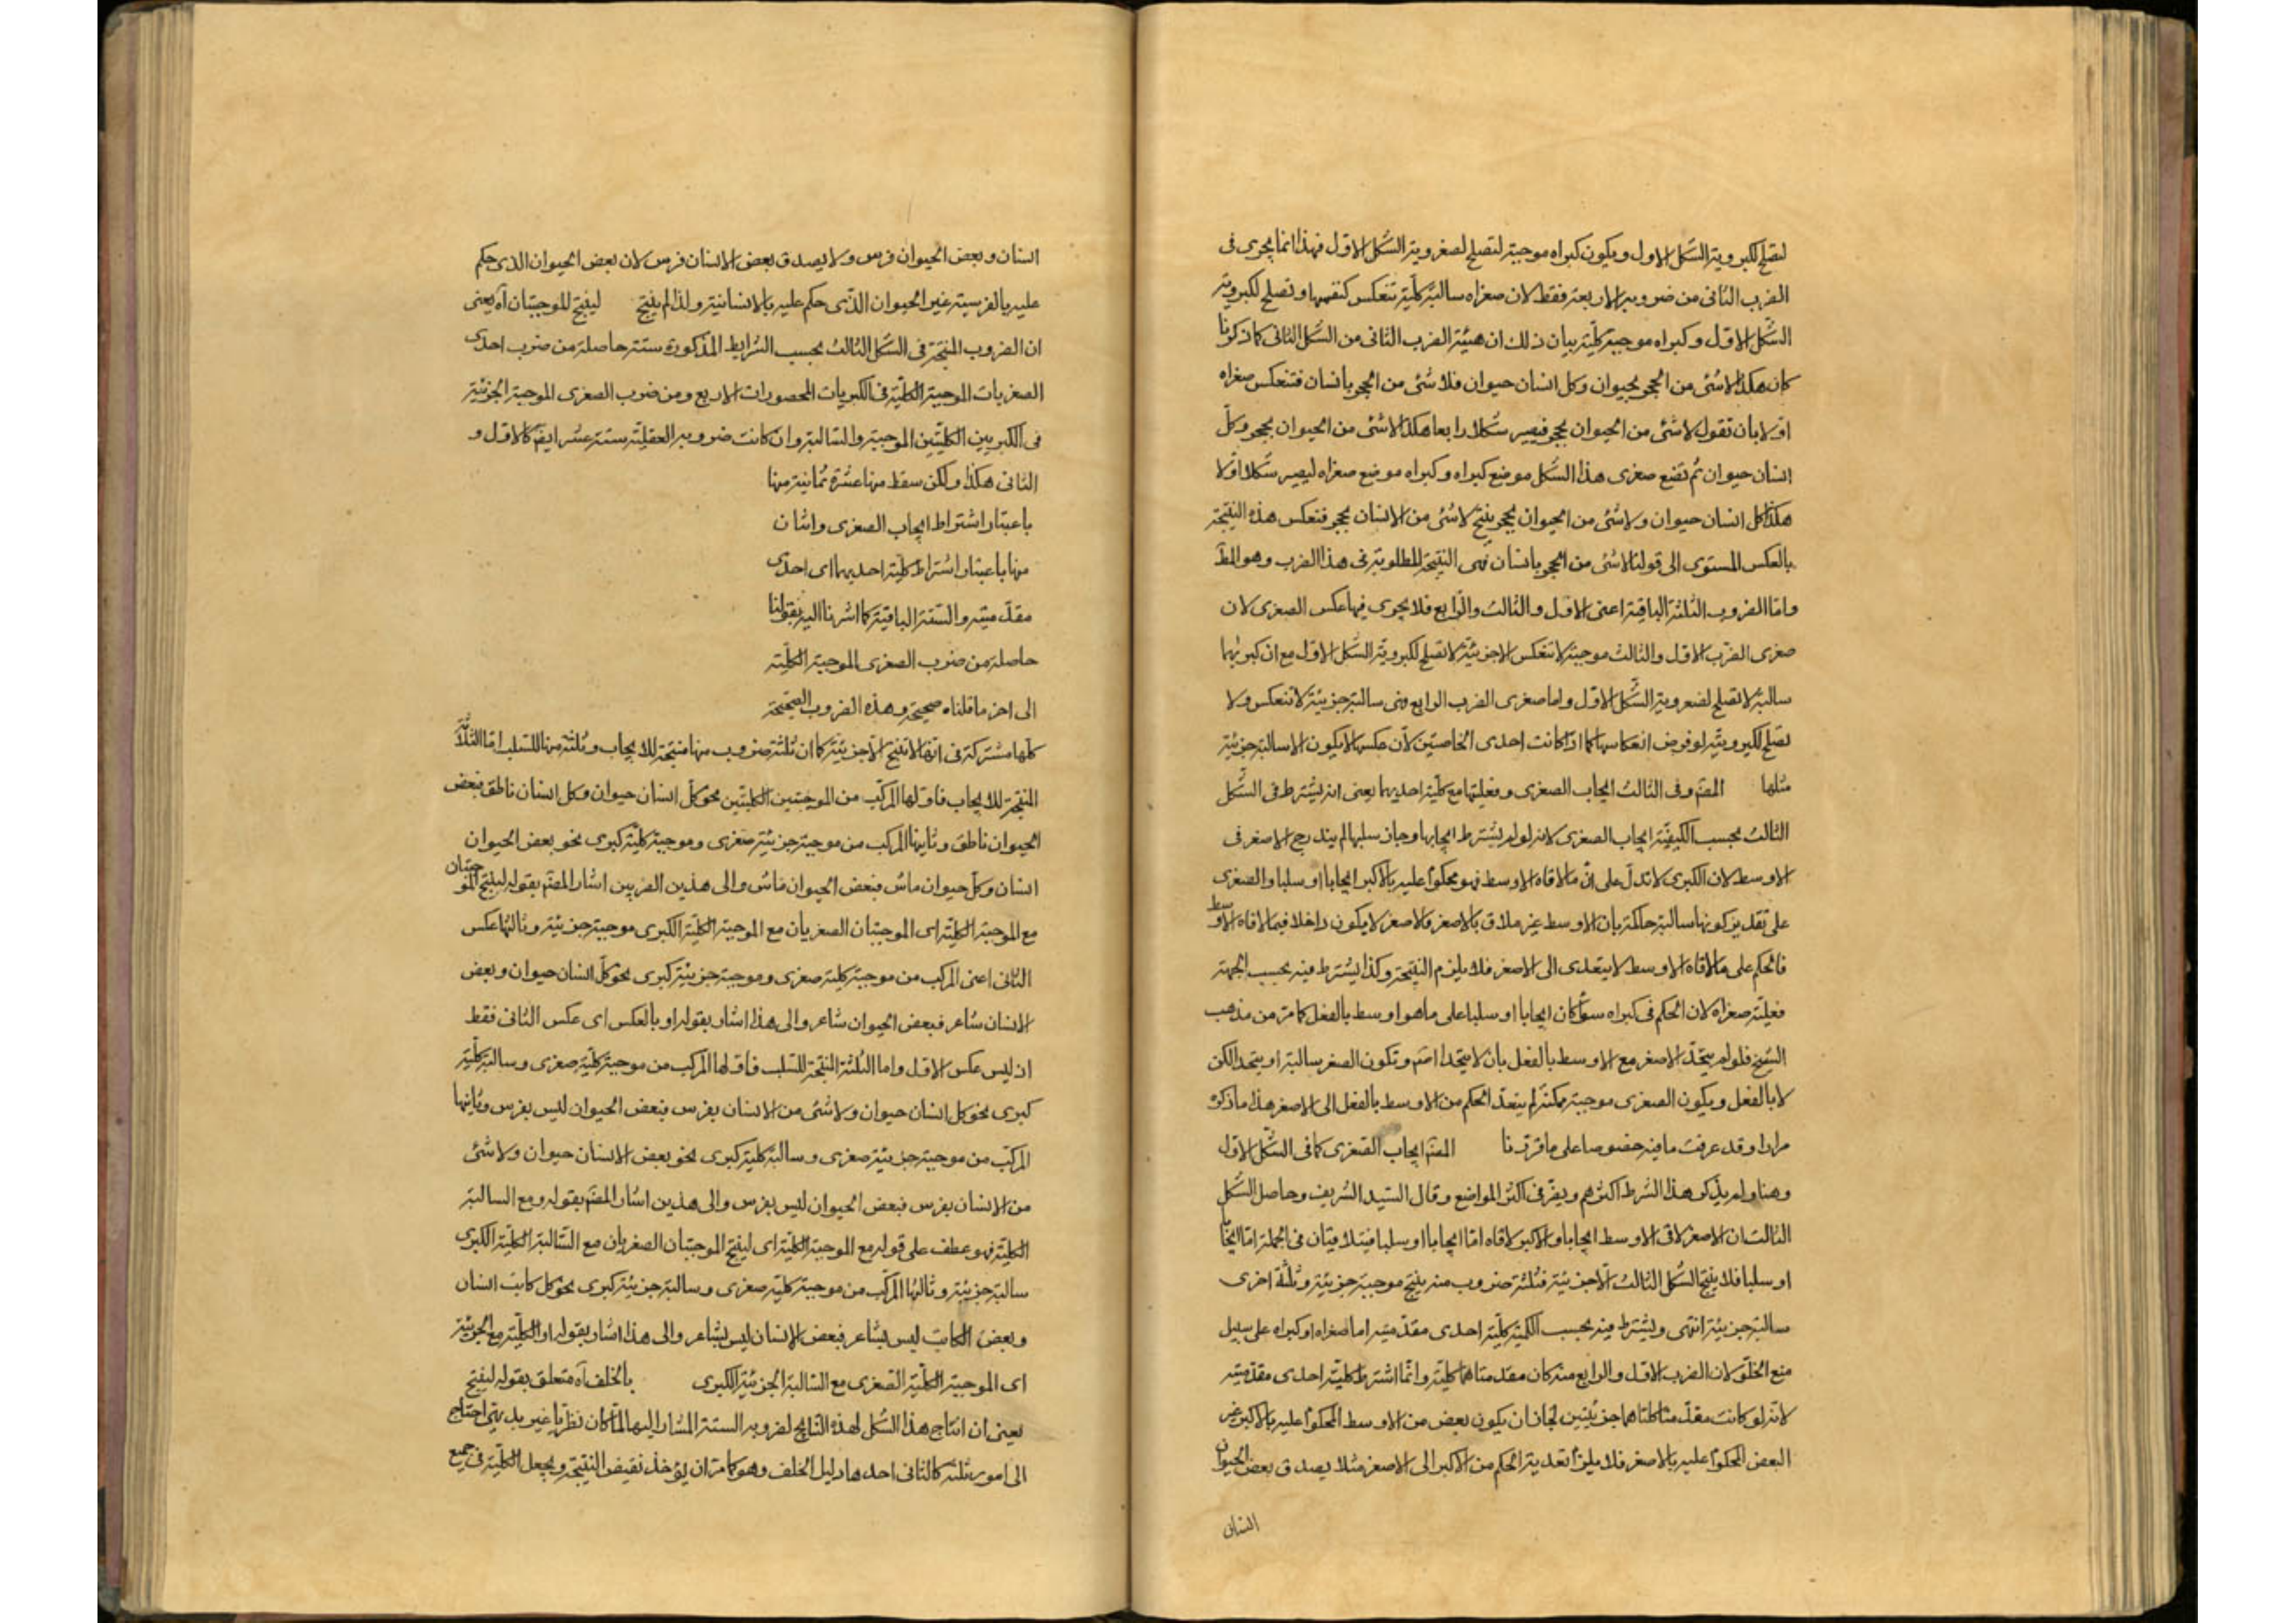 لتصلح لكبروية الشكل الاول ويكون كبراه موجبة لتصلح لصغروية الشكل الاول فهذا انما يجرى فى
الضرب الثانى من ضروبه الاربعة فقط لان صغراه سالبة كلية تنعكس كنفسها وتصلح لكبروية
الشكل الاول وكبراه موجبة كلية بيان ذلك ان هيئة الضرب الثانى من الشكل الثانى كما ذكرنا
كان هكذا لا شئ من الحجر بحيوان وكل انسان حيوان فلا شئ من الحجر بانسان فتنعكس صغراه
اولا بان تقول لا شئ من الحيوان بحجر فيصير شكلا رابعا هكذا لا شئ من الحيوان بحجر وكل
انسان حيوان ثم تضع صغرى هذا الشكل موضع كبراه وكبراه موضع صغراه ليصير شكلا اولا
هكذا كل انسان حيوان ولا شئ من الحيوان بحجر ينتج لا شئ من الانسان بحجر فتعكس هذه النتيجة
بالعكس المستوى الى قولنا لا شئ من الحجر بانسان فهى النتيجة المطلوبة فى هذا الضرب وهو المط
واما الضروب الثلثة الباقية اعنى الاول والثالث والرابع فلا يجرى فيها عكس الصغرى لان
صغرى الضرب الاول والثالث موجبة لا تنعكس الا جزئية لا تصلح لكبروية الشكل الاول مع ان كبريهما
سالبة لا تصلح لصغروية الشكل الاول واما صغرى الضرب الرابع فهى سالبة جزئية لا تنعكس ولا
تصلح لكبروية لو فرض انعكاسها كما اذا كانت احدى الخاصتين لان عكسها لا يكون الا سالبة جزئية
مثلها المصَ وفى الثالث ايجاب الصغرى وفعليتها مع كلية احديهما يعنى انه يشترط فى الشكل
الثالث بحسب الكيفية ايجاب الصغرى لانه لو لم يشترط ايجابها وجاز سلبها لم يندرج الاصغر فى
الاوسط لان الكبرى لا تدل على ان ما لاقاه الاوسط فهو محكوم عليه بالاكبر ايجابا او سلبا والصغرى
على تقدير كونها سالبة حاكمة بان الاوسط غير ملاق بالاصغر فالاصغر لا يكون داخلا فيما لاقاه الاوسط
فالحكم على ما لاقاه الاوسط لا يتعدى الى الاصغر فلا يلزم النتيجة وكذا يشترط فيه بحسب الجهة
فعلية صغراه لان الحكم فى كبراه سواء كان ايجابا او سلبا على ما هو اوسط بالفعل كما مر من مذهب
الشيخ فلو لم يتحد الاصغر مع الاوسط بالفعل بان لا يتحد اصَم وتكون الصغر سالبة او يتحد الكن
لا بالفعل ويكون الصغرى موجبة ممكنة لم يتعد الحكم من الاوسط بالفعل الى الاصغر هذا ما ذكره
مرارا وقد عرفت ما فيه خصوصا على ما قررنا المصَ ايجاب الصغرى كما فى الشكل الاول
وهنا ولم يذكر هذا الشرط اكثرهم ويقر فى اكثر المواضع وقال السيد الشريف وحاصل الشكل
الثالث ان الاصغر لاقى الاوسط ايجابا والاكبر لاقاه اما ايجابا او سلبا فيتلاقيان فى الجملة اما ايجابا
او سلبا فلا ينتج الشكل الثالث الا جزئية فثلثة ضروب منه ينتج موجبة جزئية وثلثة اخرى
سالبة جزئية انتهى ويشترط فيه بحسب الكمية كلية احدى مقدمتيه اما صغراه او كبراه على سبيل
منع الخلو لان الضرب الاول والرابع منه كان مقدمتاهما كلية وانما اشترط كلية احدى مقدمتيه
لانه لو كانت مقدمتا كلتاهما جزئيتين لجاز ان يكون بعض من الاوسط المحكوم عليه بالاكبر غير
البعض المحكوم عليه بالاصغر فلا يلزم تعدية الحكم من الاكبر الى الاصغر مثلا يصدق بعض الحيوان
انسان
انسان وبعض الحيوان فرس ولا يصدق بعض الانسان فرس لان بعض الحيوان الذى حكم
عليه بالفرسية غير الحيوان الذى حكم عليه بالانسانية ولذا لم ينتج لينتج الموجبتان آه يعنى
ان الضروب المنتجة فى الشكل الثالث بحسب الشرايط المذكورة ستة حاصلة من ضرب احدى
الصغريات الموجبة الكلية فى الكبريات المحصورات الاربع ومن ضروب الصغرى الموجبة الجزئية
فى الكبريين الكليتين الموجبة والسالبة وان كانت ضروبه العقلية ستة عشر ايضَ كالاول و
الثانى هكذا ولكن سقط منها عشرة ثمانية منها
باعتبار اشتراط ايجاب الصغرى واثنان
منها باعتبار اشتراط كلية احديهما اى احدى
مقدمتيه والستة الباقية كما اشرنا اليه بقولنا
حاصلة من ضروب الصغرى الموجبة الكلية
الى اخر ما قلناه صحيحة وهذه الضروب الصحيحة
كلها مشتركة فى انها لا تنتج الا جزئية كما ان ثلثة ضروب منها منتجة للايجاب وثلثة منها للسلب اما الثلثة
المنتجة للايجاب فاولها المركب من الموجبتين الكليتين نحو كل انسان حيوان وكل انسان ناطق فبعض
الحيوان ناطق وثانيها المركب من موجبة جزئية صغرى وموجبة كلية كبرى نحو بعض الحيوان
انسان وكل حيوان ماش فبعض الحيوان ماش والى هذين الضربين اشار المصَ بقوله لينتج الموجبتان
مع الموجبة الكلية اى الموجبتان الصغريان مع الموجبة الكلية الكبرى موجبة جزئية وثالثها عكس
الثانى اعنى المركب من موجبة كلية صغرى وموجبة جزئية كبرى نحو كل انسان حيوان وبعض
الانسان شاعر فبعض الحيوان شاعر والى هذا اشار بقوله او بالعكس اى عكس الثانى فقط
اذ ليس عكس الاول واما الثلثة المنتجة للسلب فاولها المركب من موجبة كلية صغرى وسالبة كلية
كبرى نحو كل انسان حيوان ولا شئ من الانسان بفرس فبعض الحيوان ليس بفرس وثانيها
المركب من موجبة جزئية صغرى وسالبة كلية كبرى نحو بعض الانسان حيوان ولا شئ
من الانسان بفرس فبعض الحيوان ليس بفرس والى هذين اشار المصَ بقوله ومع السالبة
الكلية فهو عطف على قوله مع الموجبة الكلية اى لينتج الموجبتان الصغريان مع السالبة الكلية الكبرى
سالبة جزئية وثالثها المركب من موجبة كلية صغرى وسالبة جزئية كبرى نحو كل كاتب انسان
وبعض الكاتب ليس بشاعر فبعض الانسان ليس بشاعر والى هذا اشار بقوله او الكلية مع الجزئية
اى الموجبة الكلية الصغرى مع السالبة الجزئية الكبرى بالخلف آه متعلق بقوله لينتج
يعنى ان انتاج هذا الشكل لهذه النتايج لضروبه الستة المشار اليها لما كان نظريا غير بديهى احتاج
الى امور ثلثة كالثانى احدها دليل الخلف وهو كما مر ان يؤخذ نقيض النتيجة ويجعل الكلية فى جميع